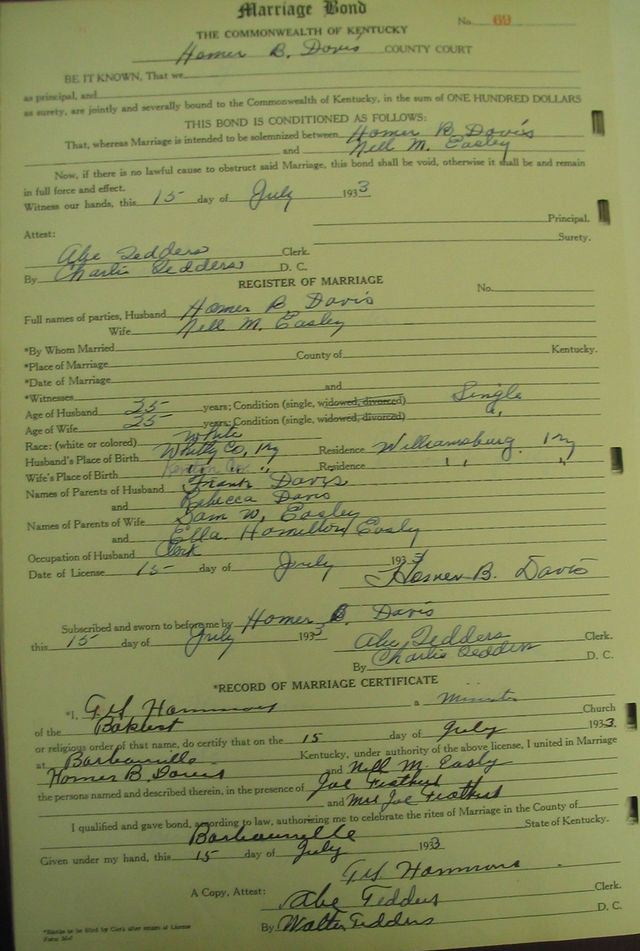 Marriage Bond
No. 69
THE COMMONWEALTH OF KENTUCKY
Homer B. Davis COUNTY COURT
BE IT KNOWN, That we
as principal, and
as surety, are jointly and severally bound to the Commonwealth of Kentucky, in the sum of ONE HUNDRED DOLLARS
THIS BOND IS CONDITIONED AS FOLLOWS:
That, whereas Marriage is intended to be solemnized between Homer B. Davis
and Nell M. Easley
Now, if there is no lawful cause to obstruct said Marriage, this bond shall be void, otherwise it shall be and remain
in full force and effect.
Witness our hands, this 15 day of July 1933
Principal.
Attest:
Surety.
Abe Tedders Clerk.
By Charlie Tedders D. C.
REGISTER OF MARRIAGE
No.
Full names of parties, Husband Homer B Davis
Wife Nell M. Easley
*By Whom Married
*Place of Marriage County of Kentucky.
*Date of Marriage
*Witnesses and
Age of Husband 35 years; Condition (single, widowed, divorced) Single
Age of Wife 25 years; Condition (single, widowed, divorced) "
Race: (white or colored) White
Husband's Place of Birth Whitly Co, Ky Residence Williamsburg. Ky
Wife's Place of Birth Kenton Co. " Residence " "
Names of Parents of Husband Frank Davis
and Rebecca Davis
Names of Parents of Wife Sam W. Easley
and Ella. Hamilton Easly
Occupation of Husband Clerk
Date of License 15 day of July 1933
Homer B. Davis
Subscribed and sworn to before me by Homer B. Davis
this 15 day of July 1933
Abe Tedders Clerk.
By Charlie Tedders D. C.
*RECORD OF MARRIAGE CERTIFICATE
*I, Hammons a Minister
of the Baptist Church
or religious order of that name, do certify that on the 15 day of July 1933.
at Barbourville Kentucky, under authority of the above license, I united in Marriage
Homer B. Davis and Nell M. Easly
the persons named and described therein, in the presence of Joe
and Mrs Joe
I qualified and gave bond, according to law, authorizing me to celebrate the rites of Marriage in the County of
Barbourville State of Kentucky.
Given under my hand, this 15 day of July 1933
Hammons
A Copy, Attest: Abe Tedders Clerk.
By Walter Tedders D. C.
*Blanks to be filled by Clerk after return of License